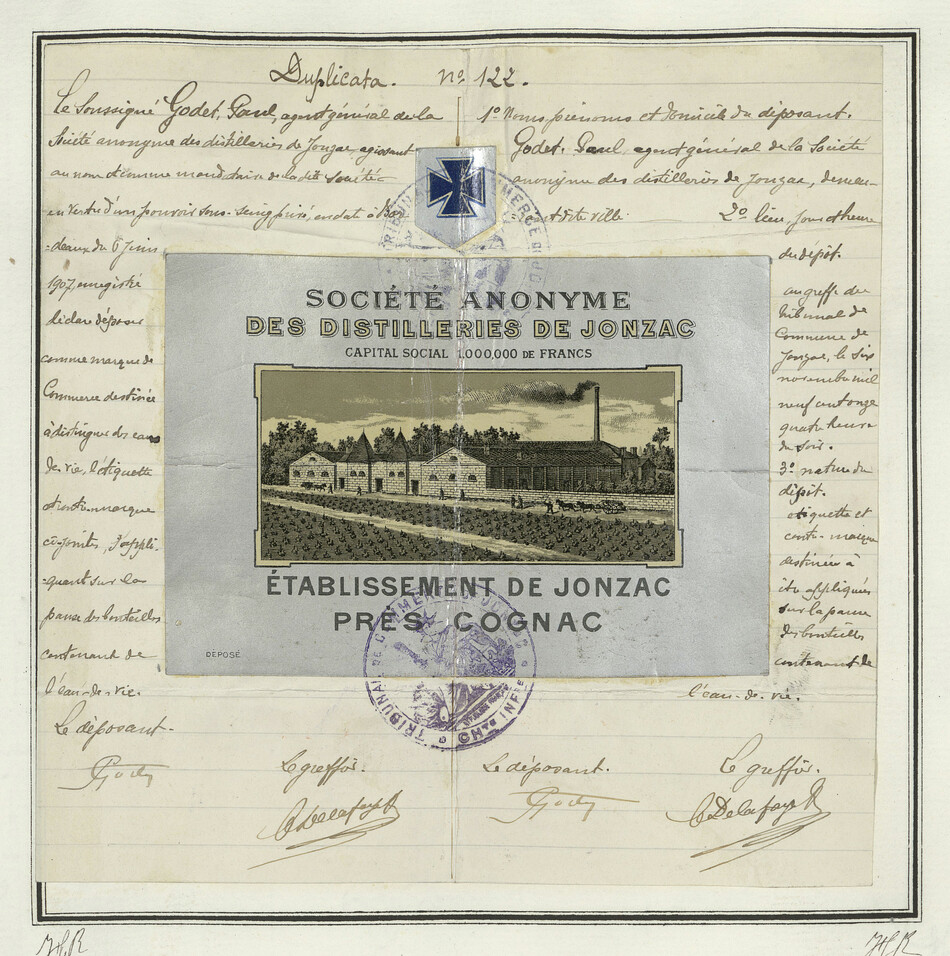 Duplicata. No 122.
Le Soussigné Godet, Paul, agent général de la
Société anonyme des distilleries de Jonzac, agissant
au nom et comme mandataire de la dite Société
en vertu d'un pouvoir sous-seing privé, en date à Bor
-deaux du 6 Juin
1907, enregistré
déclare déposer
comme marque de
Commerce destinée
à distinguer des eaux
de vie, l'étiquette
et contre-marque
ci-jointes, s'appli-
-quant sur la
panse des bouteilles
contenant de
l'eau-de-vie.
Le déposant.
Le greffier.
1o Noms prénoms et domicile du déposant.
Godet, Paul, agent général de la Société
anonyme des distilleries de Jonzac, demeu-
dite ville. 2o lieu, jour et heure
du dépôt.
au greffe du
tribunal de
Commerce de
Jonzac, le six
novembre mil
neuf cent onze
quatre heures
du soir.
3o nature du
dépôt.
etiquette et
contre-marque
destinées à
être appliquées
sur la panse
des bouteilles
contenant de
l'eau-de-vie.
Le déposant.
Le greffier.
SOCIÉTÉ ANONYME
DES DISTILLERIES DE JONZAC
CAPITAL SOCIAL 1.000,000 DE FRANCS
ÉTABLISSEMENT DE JONZAC
PRÈS COGNAC
DÉPOSÉ
TRIBUNAL DE COMMERCE DE JONZAC
CHTE INFRE